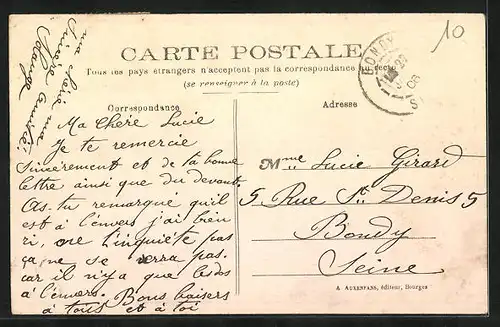 10
ma chère
Sincère amitié.
Solange
CARTE POSTALE
Tous les pays étrangers n'acceptent pas la correspondance au recto
(se renseigner à la poste)
Correspondance
Adresse
BONDY
Ma Chère Lucie
Je te remercie
Sincèrement et de ta bonne
lettre ainsi que du devant.
As-tu remarqué qu'il
est à l'envers j'ai bien
ri, ne t'inquiète pas
ça ne se verra pas.
car il n'y a que le dos
à l'envers. Bons baisers
à tous et à toi
Mme Lucie Girard
5 Rue St Denis 5
Bondy
Seine
A. AUXENFANS, éditeur, Bourges